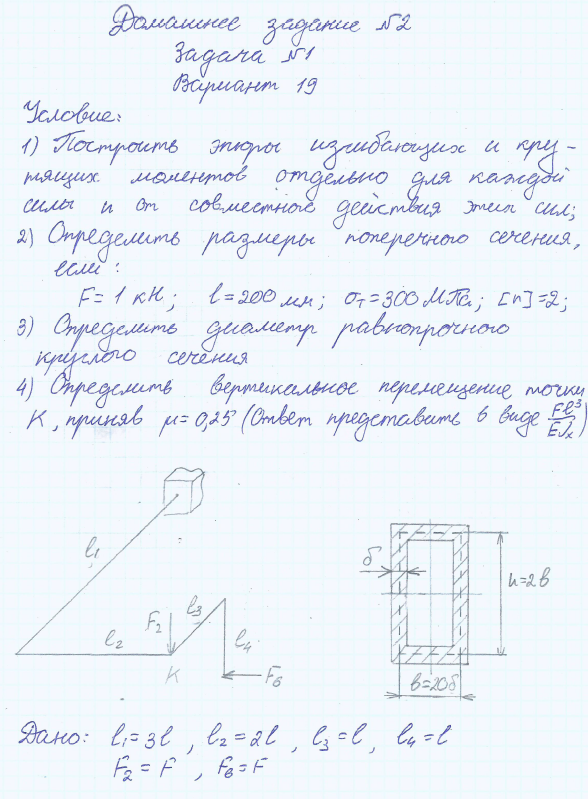 Домашнее задание №2
Задача №1
Вариант 19
Условие:
1) Построить эпюры изгибающих и кру-
тящих моментов отдельно для каждой
силы и от совместного действия этих сил;
2) Определить размеры поперечного сечения,
если:
F = 1 кН; l = 200 мм; σт = 300 МПа; [n] = 2;
3) Определить диаметр равнопрочного
круглого сечения
4) Определить вертикальное перемещение точки
К, приняв μ = 0,25 (Ответ представить в виде Fl³/EJx)
l₁
l₂
F₂
l₃
l₄
К
F₆
δ
h=2в
в=20δ
Дано: l₁ = 3l, l₂ = 2l, l₃ = l, l₄ = l
F₂ = F, F₆ = F